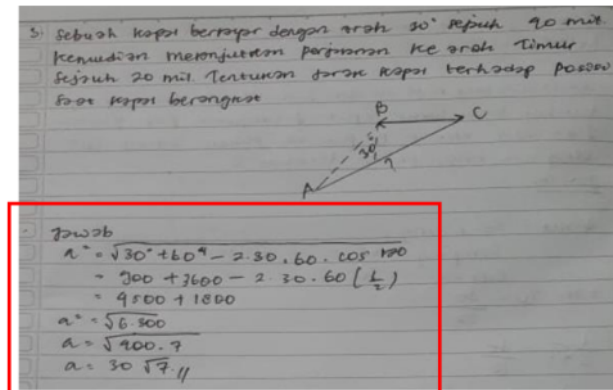 3. Sebuah kapal berlayar dengan arah 30° sejauh 40 mil
Kemudian melanjutkan perjalanan ke arah Timur
sejauh 20 mil. Tentukan jarak kapal terhadap posisi
saat kapal berangkat
B
C
30°
?
A
Jawab
a² = √30² + 60² - 2.30.60.cos 120
= 900 + 3600 - 2.30.60 (½)
= 4500 + 1800
a² = √6.300
a = √900.7
a = 30 √7 //